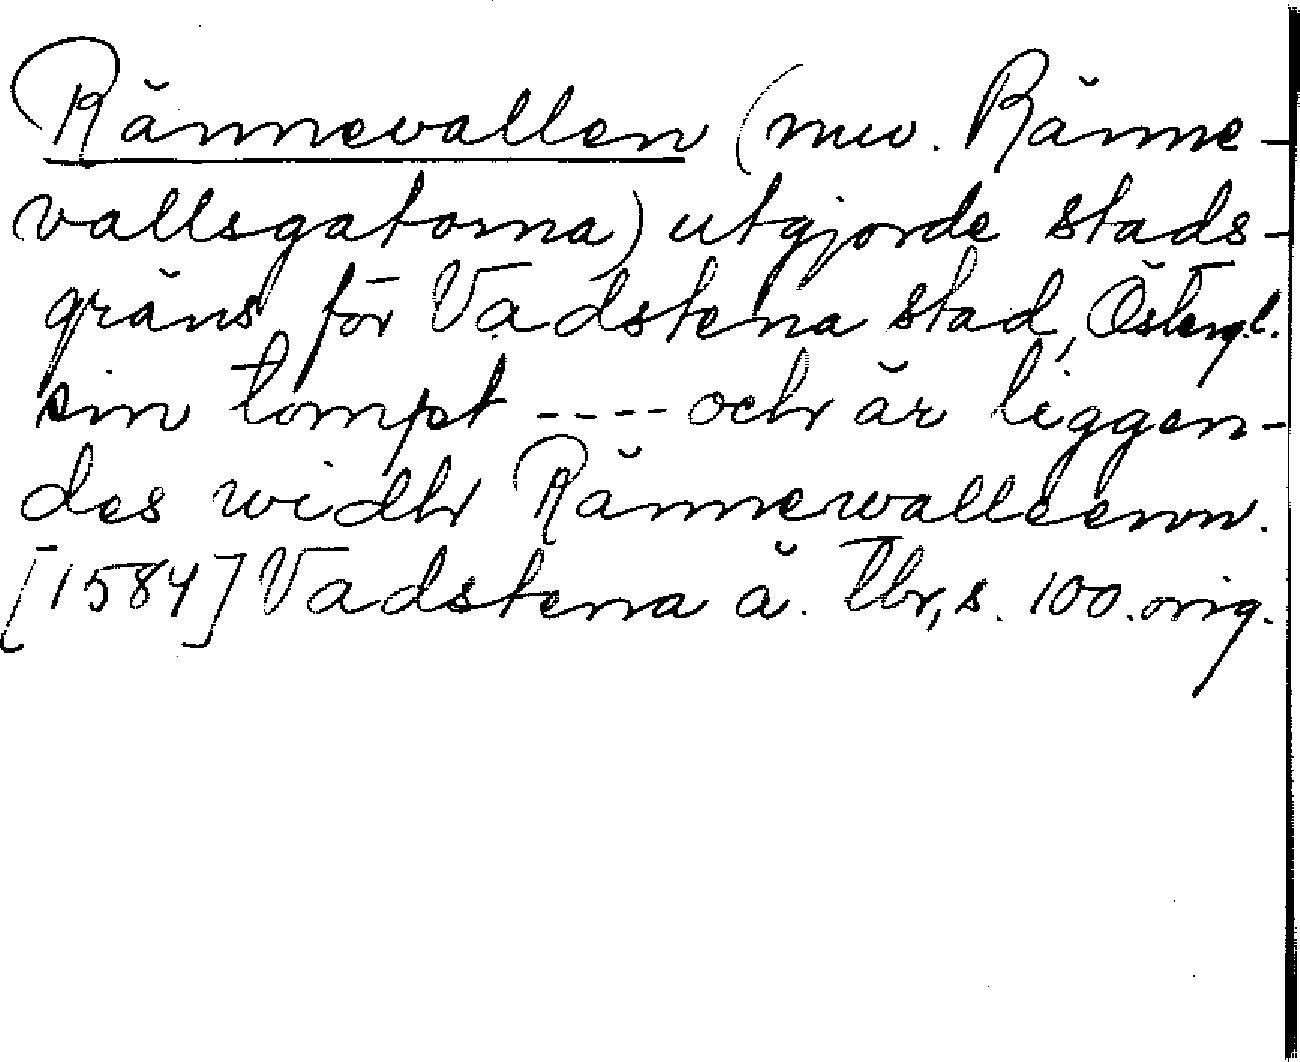 Rännevallen (nuv. Ränne-
vallsgatorna) utgjorde stads-
gräns för Vadstena stad, Östergl.
sin tompt ---- och är liggen-
des widhr Rännewalleenn.
[1584] Vadstena ä. Tbr, s. 100. orig.